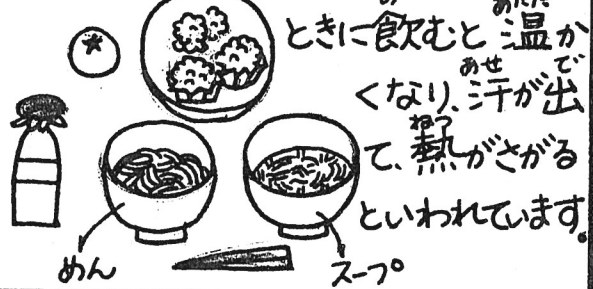 ときに飲むと温か
くなり、汗が出
て、熱がさがる
といわれています。
めん
スープ